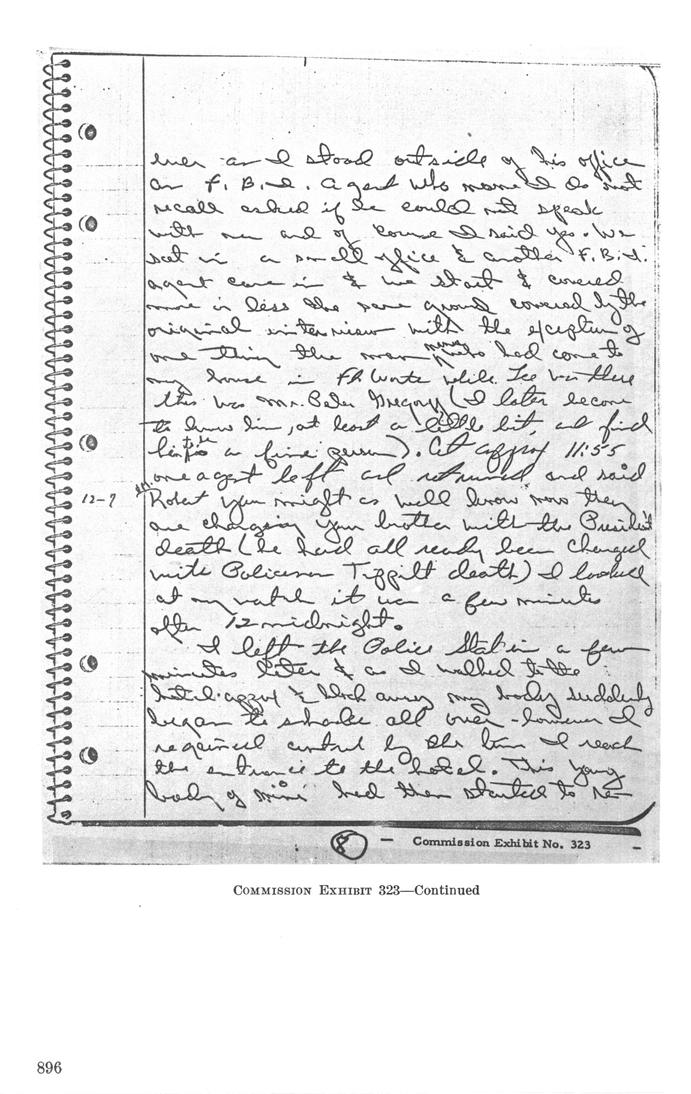 ever as I stood outside of his office
an F.B.I. agent who name I do not
recall asked if he could not speak
with me and of course I said yes. We
sat in a small office & another F.B.I.
agent came in & we start & covered
more in less the same ground covered by the
original interview with the exception of
one thing the man had come to
my house in Ft Worth while Lee was there
this was Mr. Peter Gregory (I later become
to know him, at least a little bit, and find
him to be a fine person). At approx 11:55
one agent left and returned and said
12-7
Robert you might as well know now they
are charging your brother with the President
death (he had all ready been charged
with Policeman Tippilt death) I looked
at my watch it was a few minutes
after 12 midnight.
I left the Police Station a few
minutes later & as I walked to the
hotel approx ½ block away my body suddenly
began to shake all over - however I
regained control by the time I reach
the entrance to the hotel. This young
body of mine had then started to re-
8 - Commission Exhibit No. 323 -
COMMISSION EXHIBIT 323—Continued
896